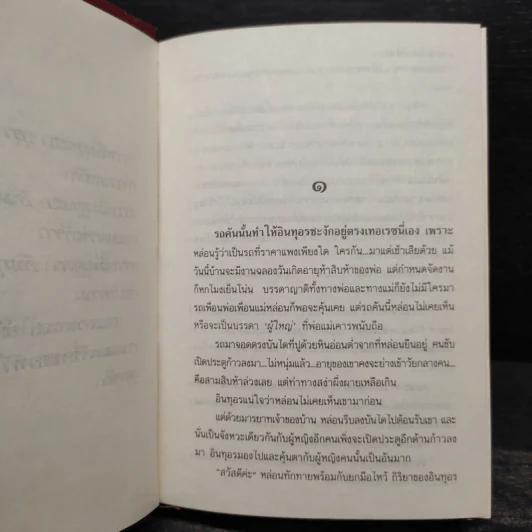 ๑
รถคันนั้นทำให้อินทุอรชะงักอยู่ตรงเทอเรซนี่เอง เพราะ
หล่อนรู้ว่าเป็นรถที่ราคาแพงเพียงใด ใครกัน...มาแต่เช้าเสียด้วย แม้
วันนี้บ้านจะมีงานฉลองวันเกิดอายุห้าสิบห้าของพ่อ แต่กำหนดจัดงาน
ก็หกโมงเย็นโน่น บรรดาญาติทั้งทางพ่อและทางแม่ก็ยังไม่มีใครมา
รถเพื่อนพ่อเพื่อนแม่หล่อนก็พอจะคุ้นเคย แต่รถคันนี้หล่อนไม่เคยเห็น
หรือจะเป็นบรรดา 'ผู้ใหญ่' ที่พ่อแม่เคารพนับถือ
รถมาจอดตรงบันไดที่ปูด้วยหินอ่อนต่ำจากที่หล่อนยืนอยู่ คนขับ
เปิดประตูก้าวลงมา...ไม่หนุ่มแล้ว...อายุของเขาคงจะย่างเข้าวัยกลางคน...
คือสามสิบห้าล่วงเลย แต่ท่าทางสง่าผึ่งผายเหลือเกิน
อินทุอรแน่ใจว่าหล่อนไม่เคยเห็นเขามาก่อน
แต่ด้วยมารยาทเจ้าของบ้าน หล่อนรีบลงบันไดไปต้อนรับเขา และ
นั่นเป็นจังหวะเดียวกันกับผู้หญิงอีกคนเพิ่งจะเปิดประตูอีกด้านก้าวลง
มา อินทุอรมองไปและคุ้นตากับผู้หญิงคนนั้นเป็นอันมาก
"สวัสดีค่ะ" หล่อนทักทายพร้อมกับยกมือไหว้ กิริยาของอินทุอร